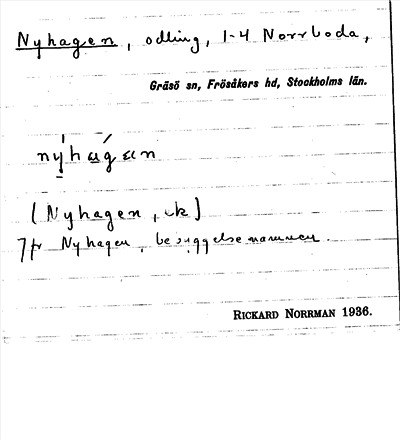 Nyhagen, odling, 1-4 Norrboda,
Gräsö sn, Frösåkers hd, Stockholms län.
nýhágan
[Nyhagen, ek]
Jfr Nyhagen, bebyggelsenamnen.
RICKARD NORRMAN 1936.